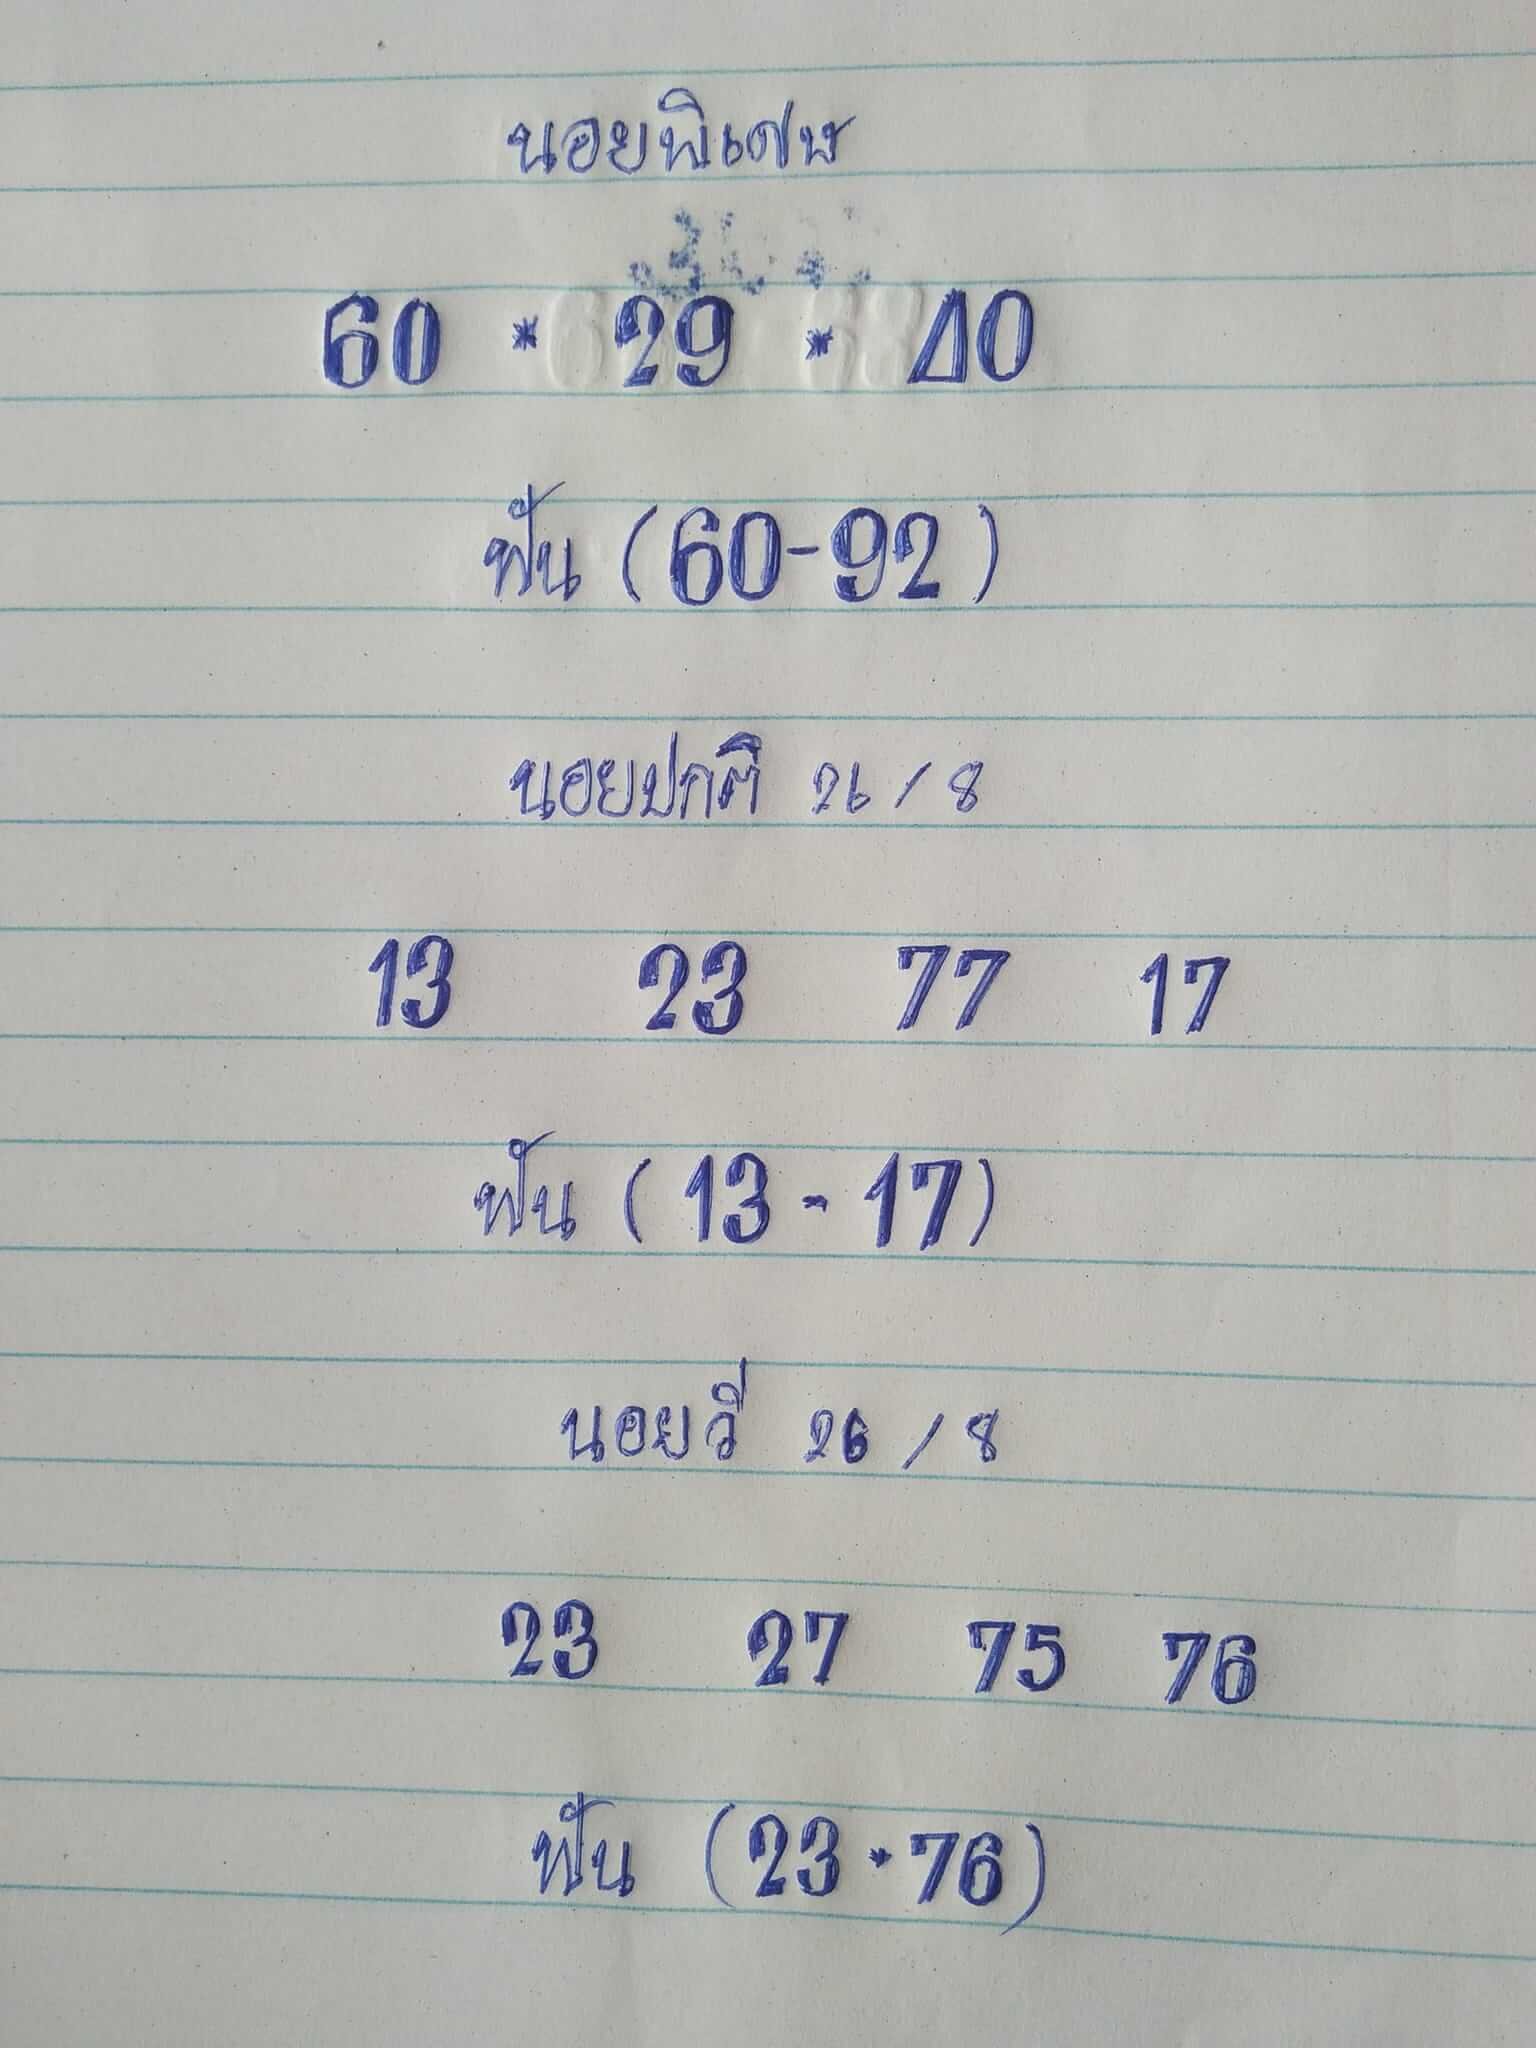 นอยพิเศษ
60 * 29 * 40
ฟัน (60-92)
นอยปกติ 26/8
13 23 77 17
ฟัน (13-17)
นอยวี 26/8
23 27 75 76
ฟัน (23*76)